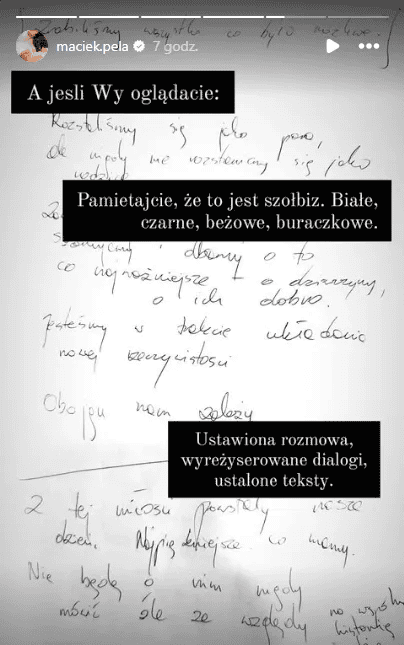 Zrobiliśmy wszystko co było możliwe.
maciek.pela 7 godz.
A jesli Wy oglądacie:
Rozstaliśmy się jako para,
ale nigdy nie rozstaniemy się jako
Pamietajcie, że to jest szołbiz. Białe,
czarne, beżowe, buraczkowe.
i dbamy o to
co najważniejsze - o dziewczyny,
o ich dobro.
Jesteśmy w trakcie układania
nowej rzeczywistości
Obojgu nam zależy
Ustawiona rozmowa,
wyreżyserowane dialogi,
ustalone teksty.
Z tej miłości powstały nasze
dzieci. Najpiękniejsze co mamy.
Nie będę o nim nigdy
mówić źle ze względu na wspólną
historię